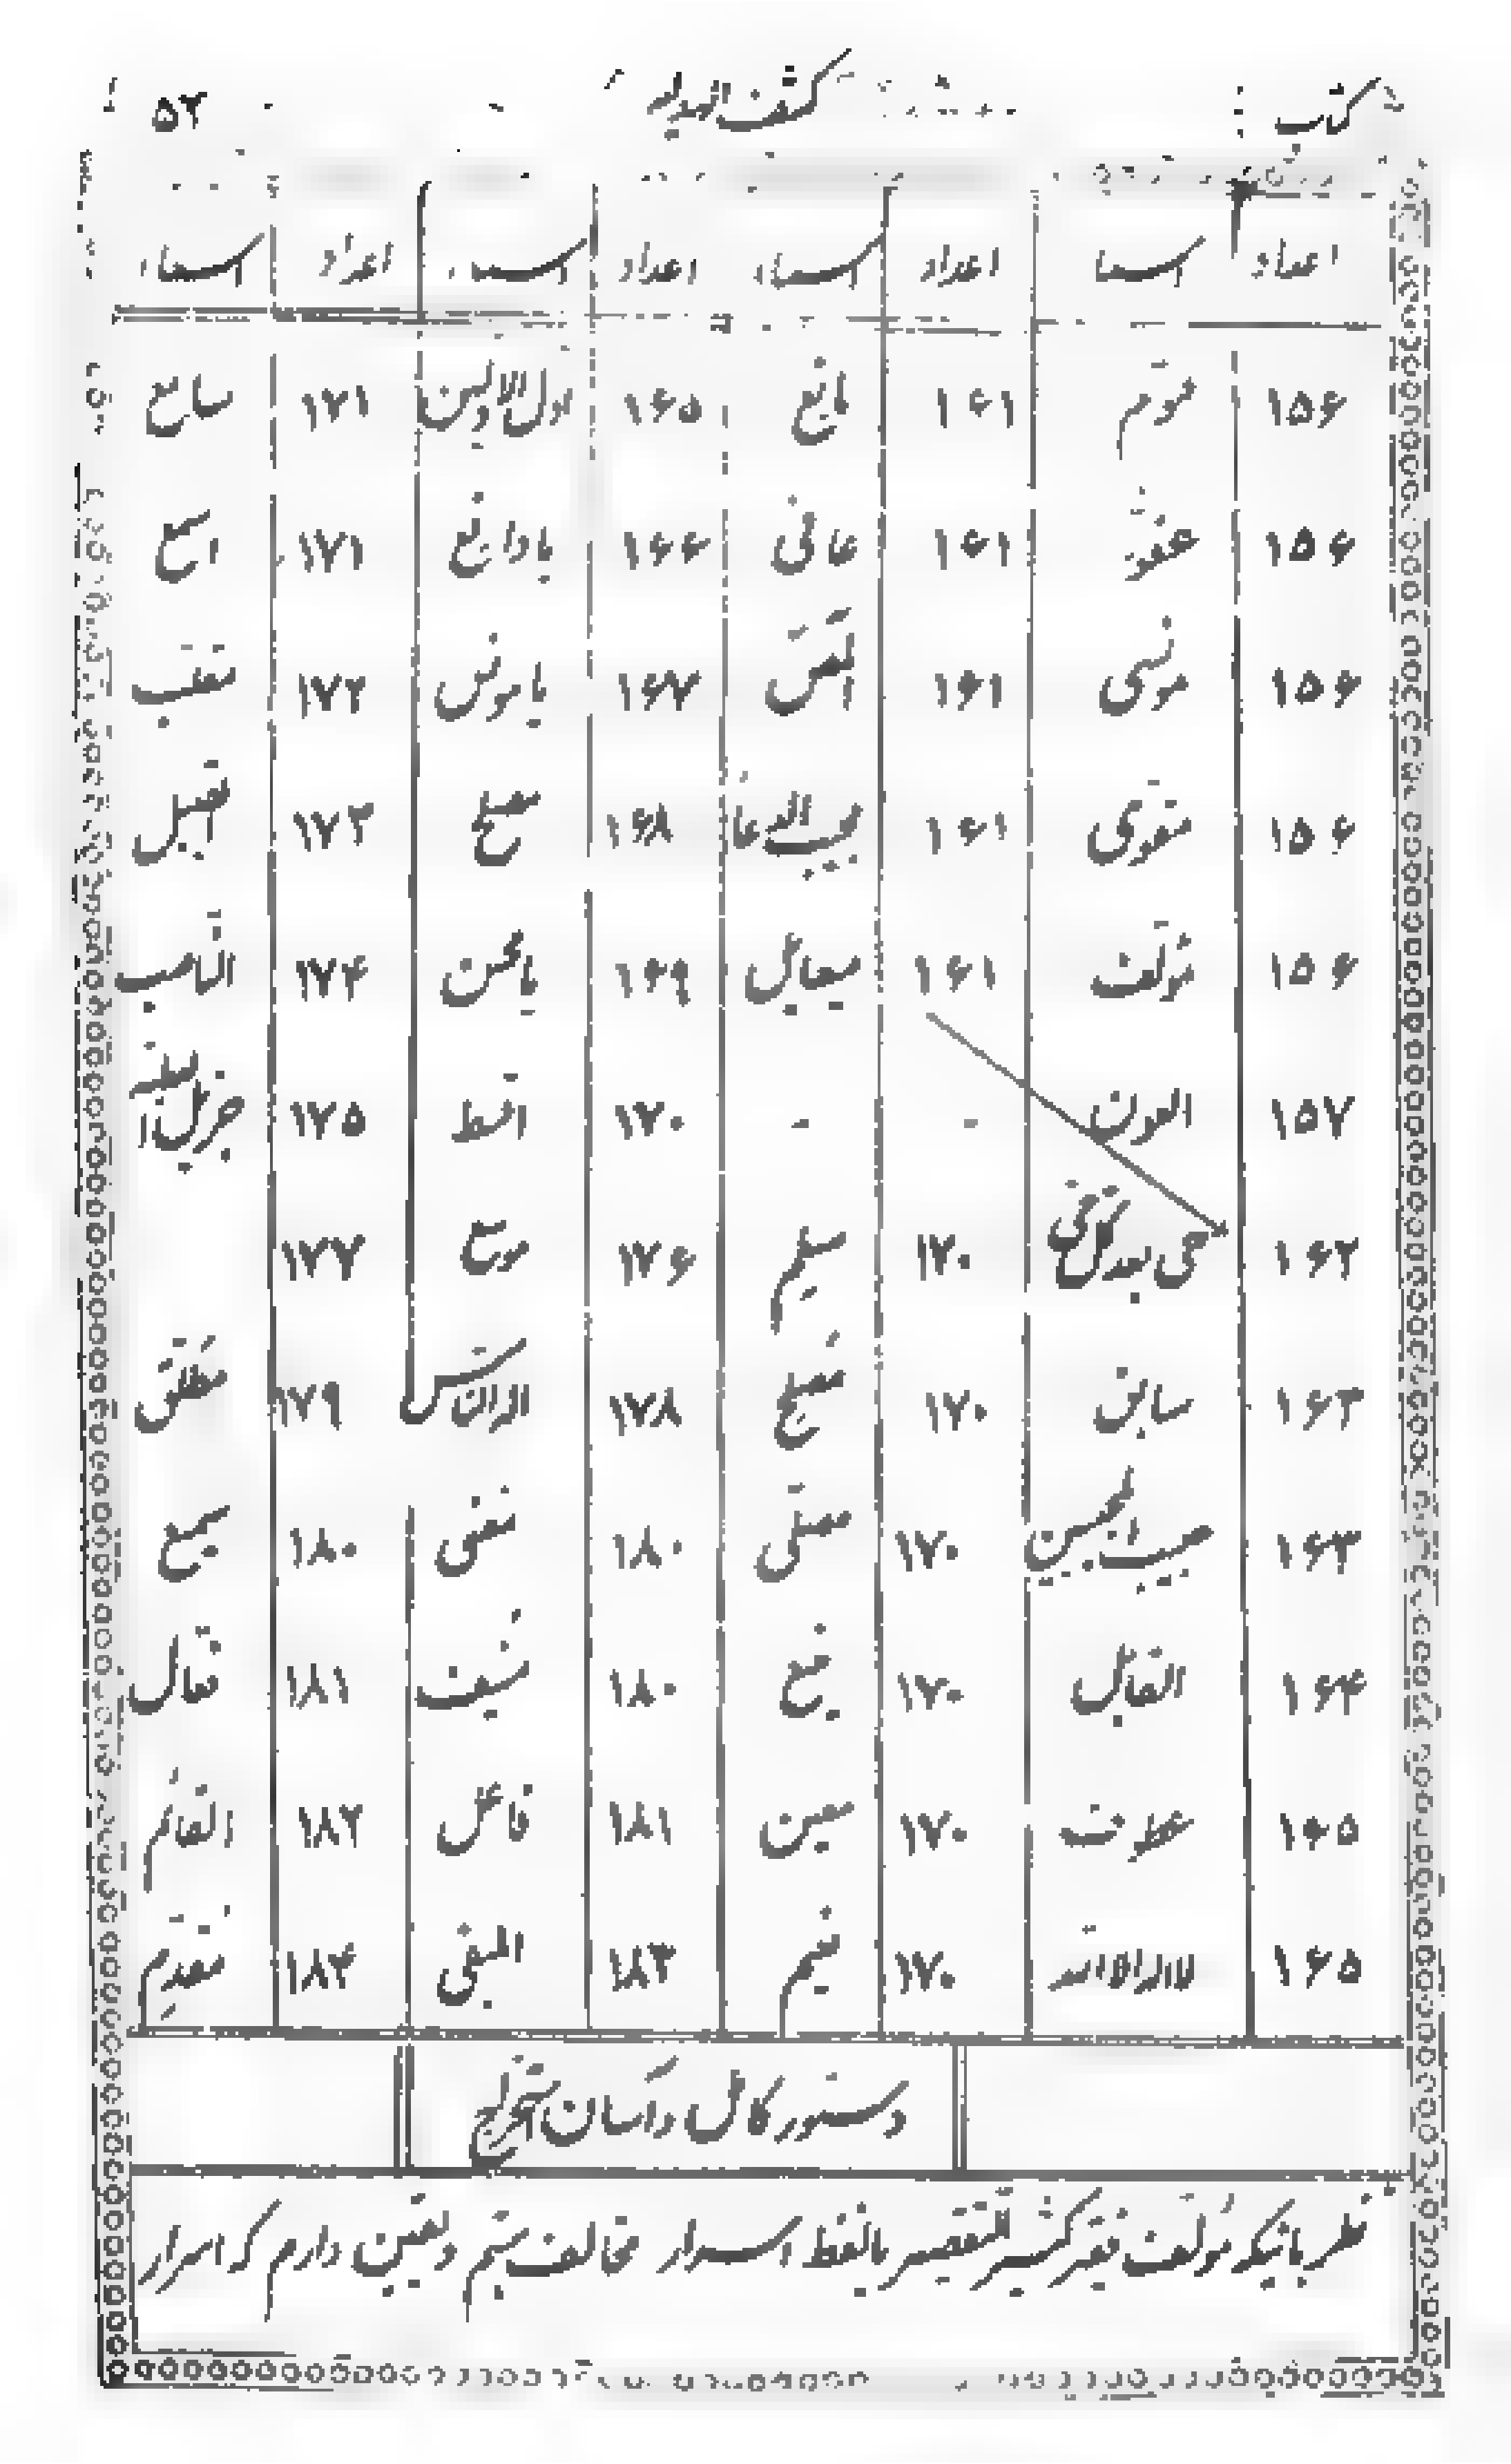 کتاب : کشف الهدایه ۵۲
اعداد اسما اعداد اسماء اعداد اسماء اعداد اسماء
۱۵۶ مقوم ۱۶۱ مانع ۱۶۵ اول الاولین ۱۷۱ سامع
۱۵۶ عفو ۱۶۱ عافی ۱۶۶ ۱۷۱ اسمع
۱۵۶ مونسی ۱۶۱ ۱۶۷ یا مونس ۱۷۲ متقلب
۱۵۶ مقوی ۱۶۱ مجیب الدعا ۱۶۸ مصلح ۱۷۳
۱۵۶ مؤلف ۱۶۱ ۱۶۹ یا محسن ۱۷۴
۱۵۷ العون - - ۱۷۰ اقسط ۱۷۵
۱۶۲ حی بعد کل حی ۱۷۰ ۱۷۶ موسع ۱۷۷
۱۶۳ سابق ۱۷۰ مصلح ۱۷۸ اله الناس ۱۷۹ مطلق
۱۶۳ ۱۷۰ مصلی ۱۸۰ ۱۸۰ سمیع
۱۶۴ القابل ۱۷۰ ۱۸۰ ۱۸۱ فعال
۱۶۵ عطوف ۱۷۰ معین ۱۸۱ فاعل ۱۸۲ القائم
۱۶۵ لا اله الا الله ۱۷۰ ۱۸۳ المبقی ۱۸۴ مقدم
دستور کامل و آسان استخراج
نظر باینکه مؤلف فقیر کثیر التقصیر بالفظ اسرار مخالف هستم و یقین دارم که اسرار